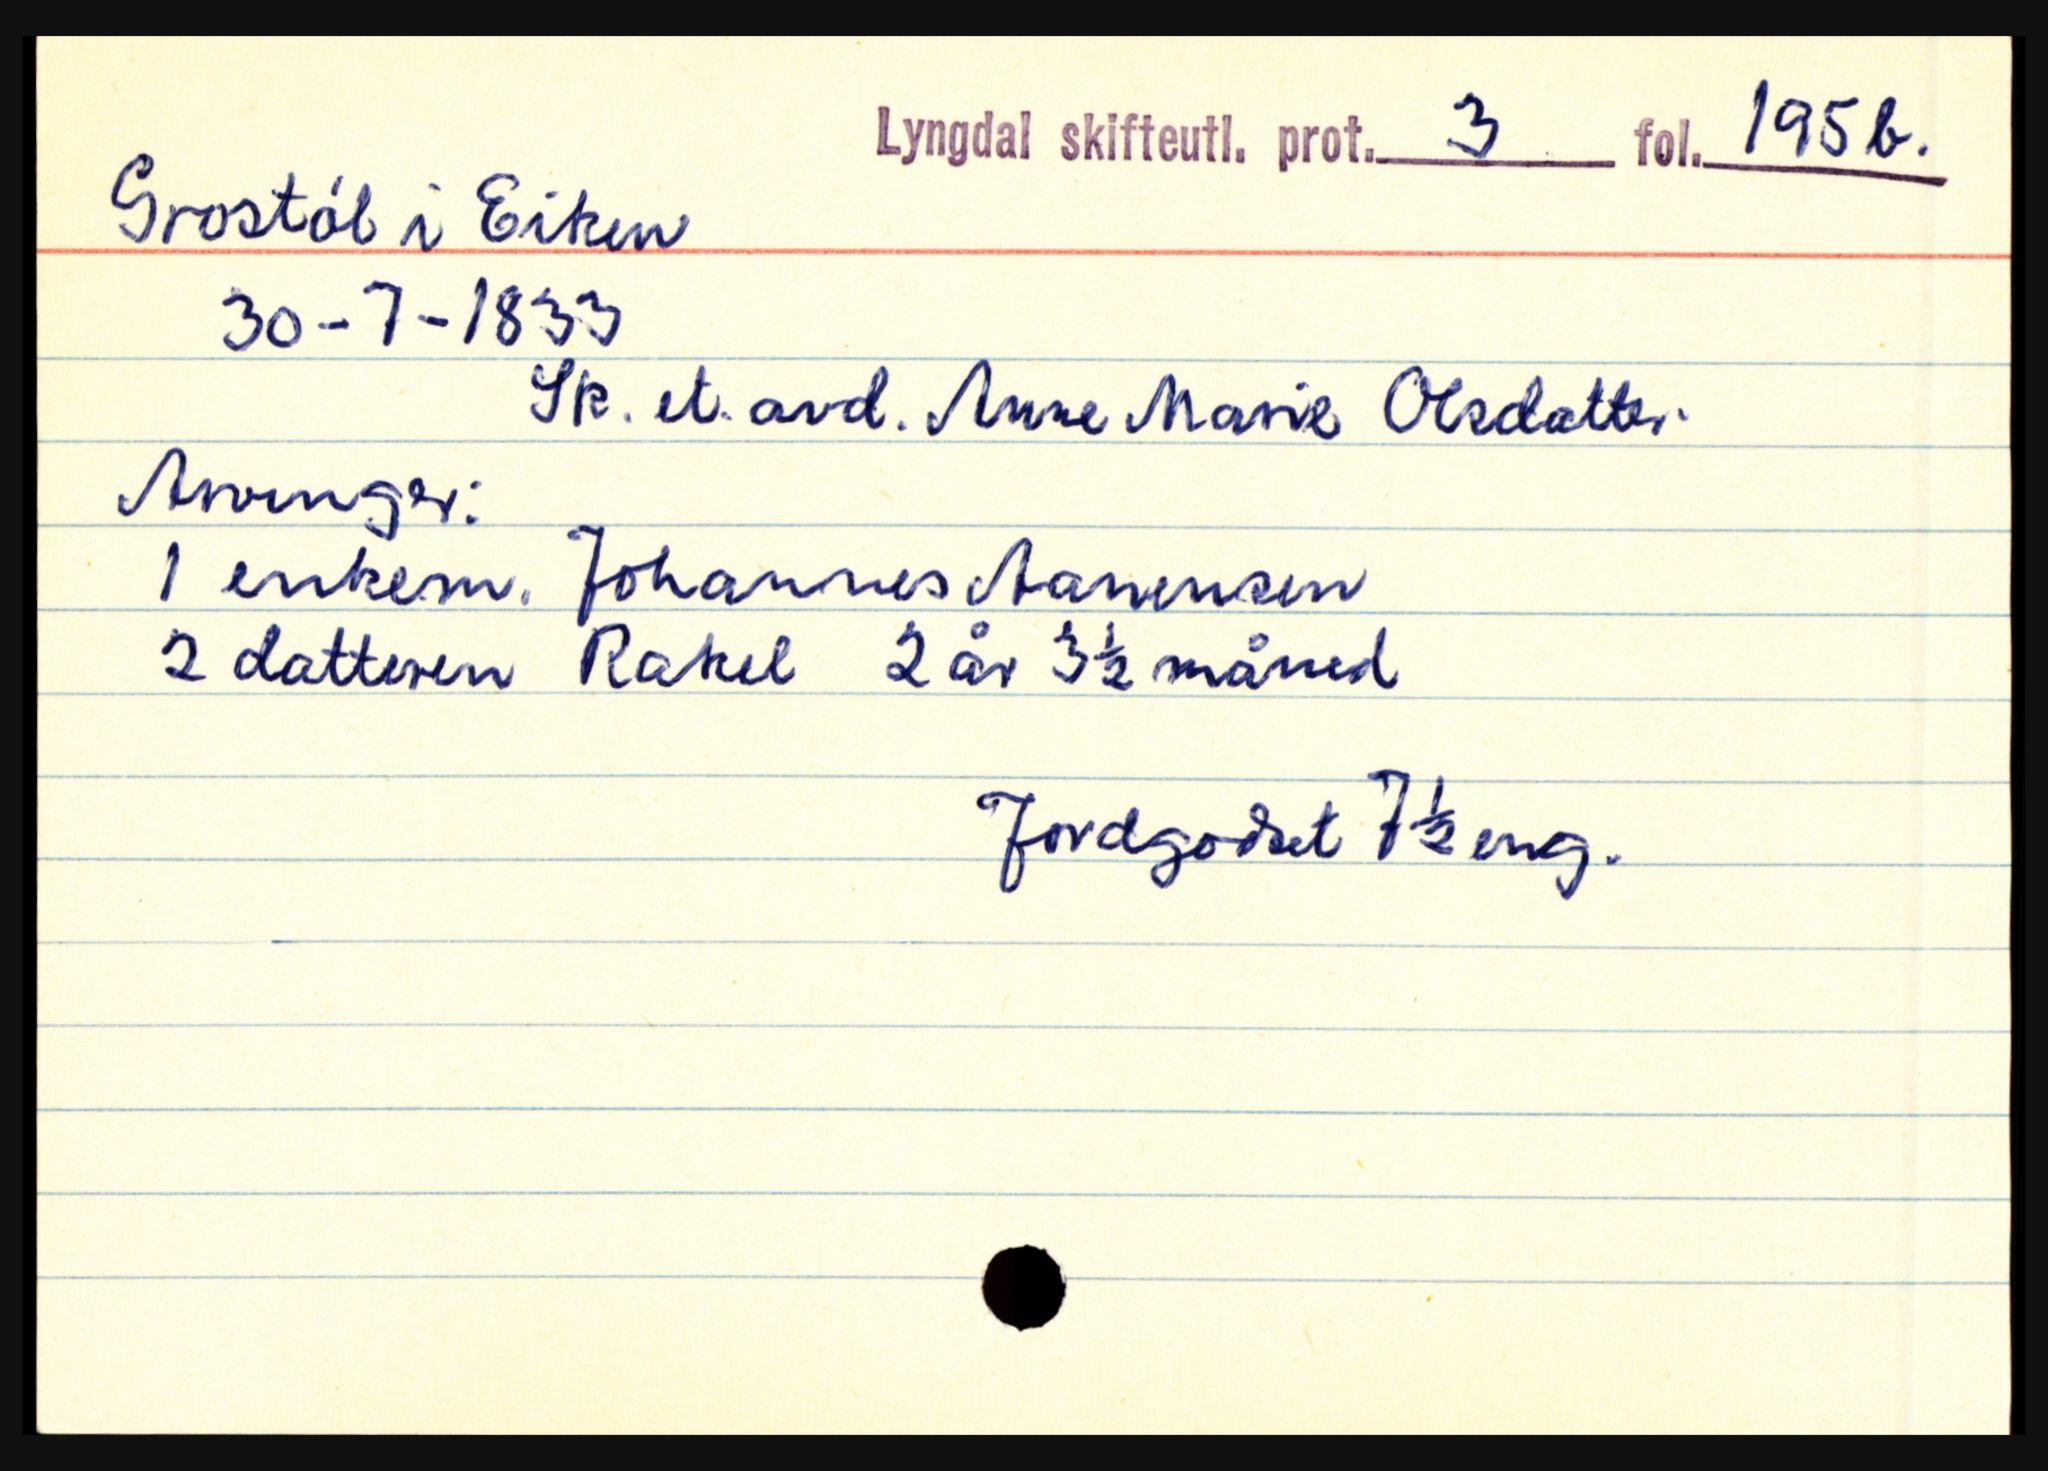 Lyngdal skifteutl. prot. 3 fol. 195b.
Grostøl i Eiken
30-7-1833
Sk. et. avd. Anne Marie Olsdatter.
Arvinger:
1 enkem. Johannes Aanensen
2 datteren Rakel 2 år 3½ måned
Jordgodset 7½ eng.